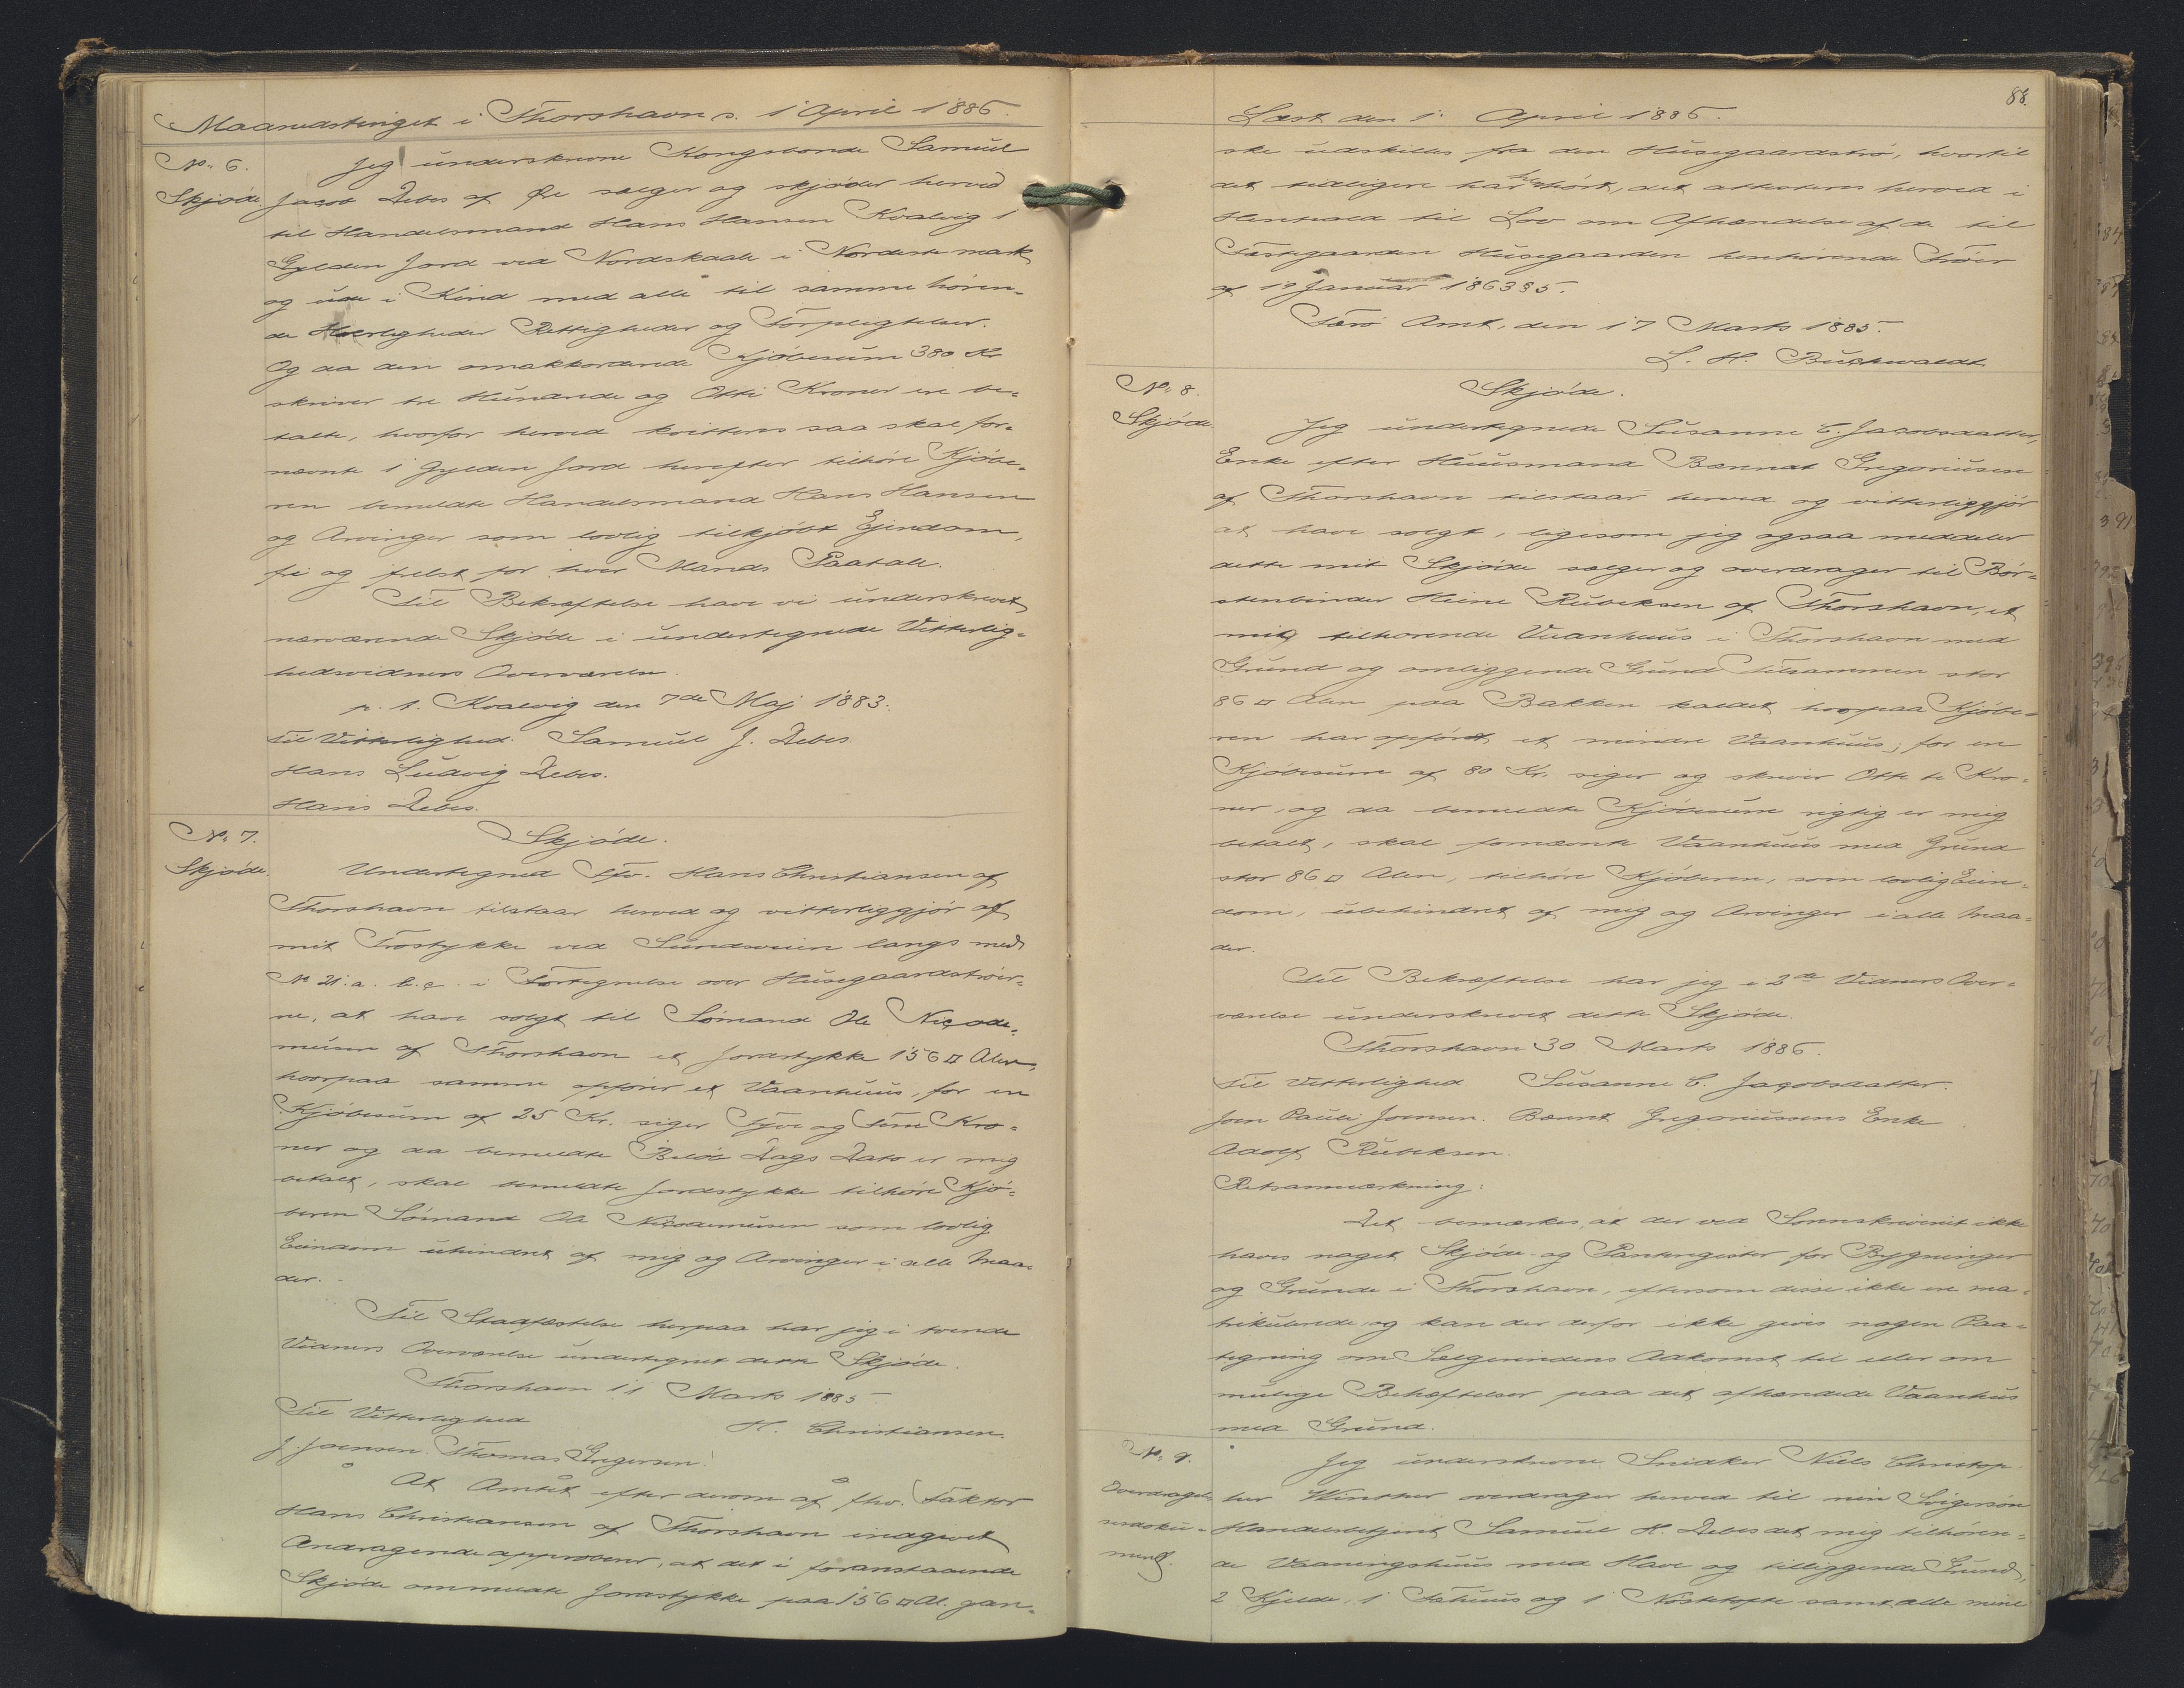 Maanedstinget i Thorshavn d. 1 April 1886.
No. 6.
Skjøde.
Jeg underskrevne Kongsbonde Samuel
Jacob Debes af Øre sælger og skjøder herved
til Handelsmand Hans Hansen Kvalvig 1
Gylden Jord ved Nordskaale i Nordeste mark
og ude i Kind med alle til samme høren-
de Herligheder Rettigheder og Forpligtelser.
Og da den omakkorderede Kjøbesum 380 Kr.
skriver tre Hundrede og Otti Kroner ere be-
talte, hvorfor herved kvitteres saa skal for-
nævnte 1 Gylden Jord herefter tilhøre Kjøbe-
ren bemeldte Handelsmand Hans Hansen
og Arvinger som lovlig tilkjøbt Ejendom,
fri og frelst for hver Mands Paatale.
Til Bekræftelse have vi underskrevet
nærværende Skjøde i undertegnede Vitterlig-
hedsvidners Overværelse.
p. t. Kvalvig den 7de Maj 1883.
Til Vitterlighed. Samuel J. Debes.
Hans Ludvig Debes.
Hans Debes.
No. 7.
Skjøde.
Skjøde.
Undertegned fhv. Hans Christiansen af
Thorshavn tilstaar herved og vitterliggjør af
mit Trøstykke ved Sundsveien langs med
No 21. a. b. c. i Fortegnelse over Husegaardstrøer-
ne, at have solgt til Sømand Ole Nicode-
musen af Thorshavn et Jordstykke 156 □ Alen,
hvorpaa samme opfører et Vaanhuus, for en
Kjøbesum af 25 Kr. siger Tyve og Fem Kro-
ner og da bemeldte Beløb Dags Dato er mig
betalt, skal bemeldte Jordstykke tilhøre Kjø-
beren Sømand Ole Nicodemusen som lovlig
Eiendom uhindret af mig og Arvinger i alle Maa-
der.
Til Stadfæstelse herpaa har jeg i tvende
Vidners Overværelse undertegnet dette Skjøde.
Thorshavn 11 Marts 1885
Til Vitterlighed H. Christiansen.
J. Joensen. Thomas Gregersen.
At Amtet efter derom af fhv. Faktor
Hans Christiansen af Thorshavn indgivet
Andragende approberer, at det i foranstaaende
Skjøde ommeldte Jordstykke paa 156 □ Al. gan-
88.
Læst den 1. April 1886.
ske udskilles fra den Husegaardstrø, hvortil
det tidligere har henhørt, det attesteres herved i
Henhold til Lov om Afhændelse af de til
Fæstegaarden Husegaarden henhørende Trøer
af 19 Januar 1863 § 5.
Færø Amt, den 17 Marts 1885.
L. H. Buchwaldt.
No. 8.
Skjøde.
Skjøde.
Jeg undertegnede Susanne C. Jacobsdatter,
Enke efter Huusmand Bærndt Gregoriusen
af Thorshavn tilstaar herved og vitterliggjør
at have solgt, ligesom jeg ogsaa meddeler
dette mit Skjøde sælger og overdrager til Bør-
stenbinder Heine Rubeksen af Thorshavn, et
mig tilhorende Vaanhuus i Thorshavn med
Grund og omliggende Grund Tilsammen stor
86 □ Alen paa Bakken kaldet hvorpaa Kjøbe-
ren har opført et mindre Vaanhuus, for en
Kjøbesum af 80 Kr. siger og skriver Otte ti Kro-
ner, og da bemeldte Kjøbesum rigtig er mig
betalt, skal fornævnte Vaanhuus med Grund
stor 86 □ Alen, tilhøre Kjøberen, som lovlig Eien-
dom, ubehindret af mig og Arvinger i alle Maa-
der.
Til Bekræftelse har jeg i 2de Vidners Over-
værelse underskrevet dette Skjøde.
Thorshavn 30 Marts 1886.
Til Vitterlighed Susanne C. Jacobsdatter.
Joen Pauli Joensen. Bærnt Gregoriussens Enke
Adolf Rubeksen.
Retsanmærkning:
Det bemærkes, at der ved Sorenskriveriet ikke
haves noget Skjøde- og Panteregister for Bygninger
og Grunde i Thorshavn, eftersom disse ikke ere ma-
trikulerede og kan der derfor ikke gives nogen Paa-
tegning om Sælgerindens Adkomst til eller om
mulige Behæftelser paa det afhændede Vaanhus
med Grund.
No. 9.
Overdragel-
sesdoku-
ment.
Jeg underskrevne Snedker Niels Christop-
her Winther overdrager herved til min Svigersøn
Handelsbetjent Samuel H. Debes det mig tilhøren-
de Vaaningshuus med Have og tilliggende Grund,
2 Kjelde, 1 Fæhuus og 1 Nøstetofte samt alle mine